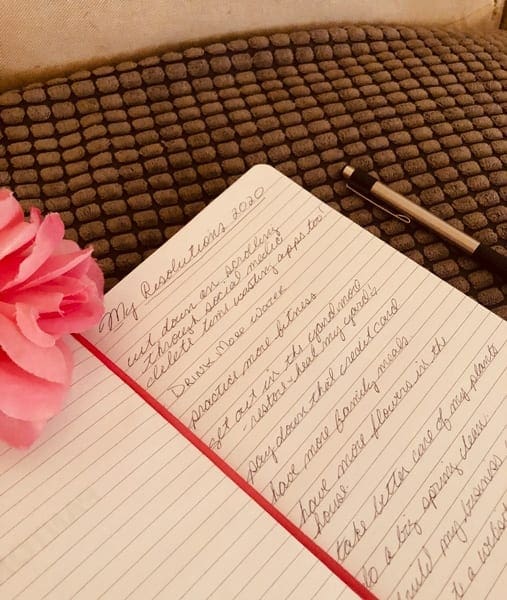 My Resolutions 2020
cut down on scrolling
through social media
delete time wasting apps too!
Drink More Water
practice more fitness
get out in the yard more
- restore & heal my yard
pay down that credit card
have more family meals
have more flowers in the
house.
take better care of my plants
do a big spring clean.
build my business
a website